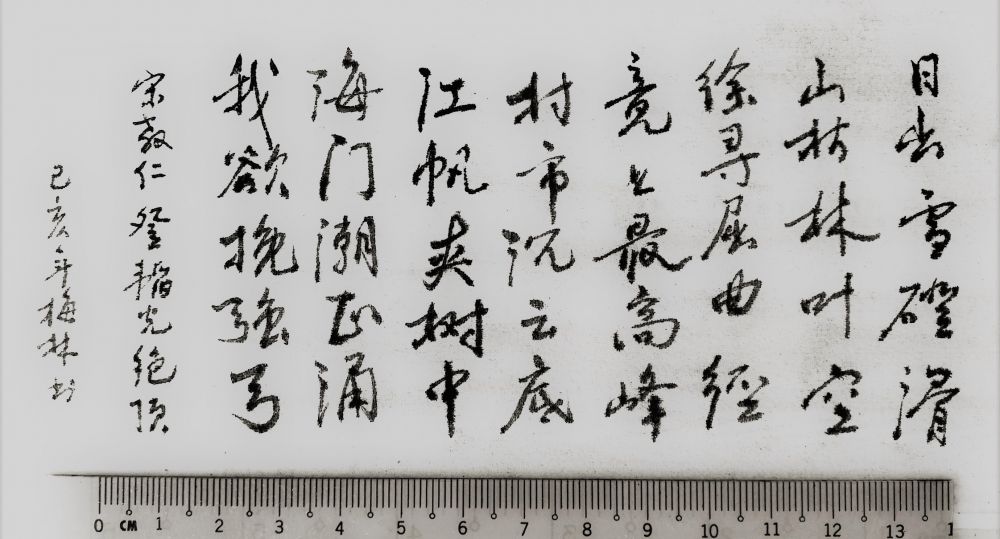 日出雪磴滑
山枯林叶空
徐寻屈曲經
竟上最高峰
村市沉云底
江帆夹树中
海门潮正涌
我欲挽强弓
宋教仁登韬光绝顶
己亥年梅林书
0 CM 1 2 3 4 5 6 7 8 9 10 11 12 13 1